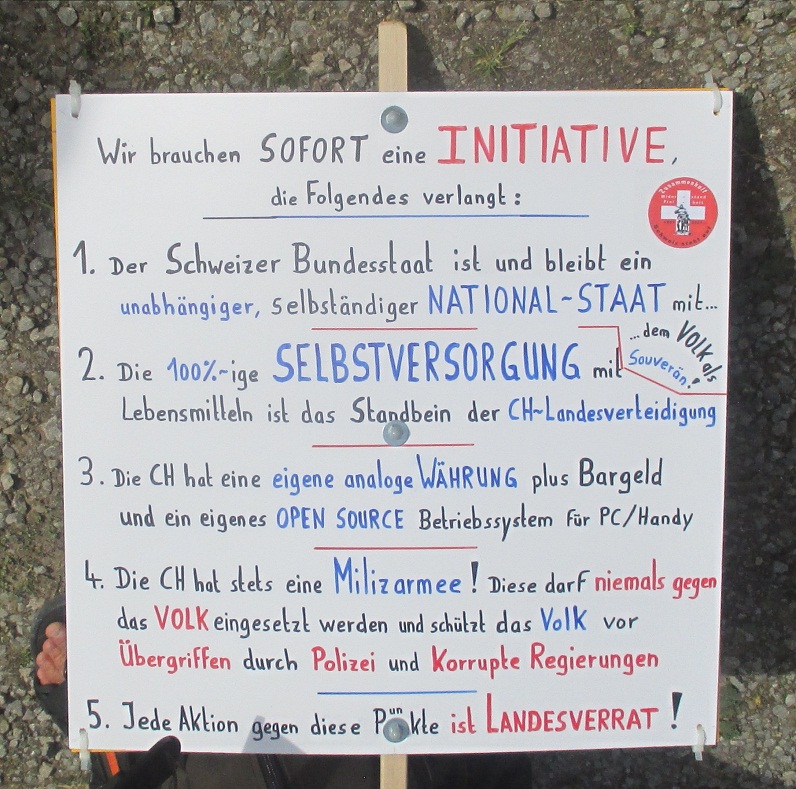 Wir brauchen SOFORT eine INITIATIVE,
die Folgendes verlangt:
Zusammenhalt
1. Der Schweizer Bundesstaat ist und bleibt ein
unabhängiger, selbständiger NATIONAL-STAAT mit...
...dem VOLK als
Souverän!
2. Die 100%-ige SELBSTVERSORGUNG mit
Lebensmitteln ist das Standbein der CH-Landesverteidigung
3. Die CH hat eine eigene analoge WÄHRUNG plus Bargeld
und ein eigenes OPEN SOURCE Betriebssystem für PC/Handy
4. Die CH hat stets eine Milizarmee! Diese darf niemals gegen
das VOLK eingesetzt werden und schützt das Volk vor
Übergriffen durch Polizei und Korrupte Regierungen
5. Jede Aktion gegen diese Punkte ist LANDESVERRAT!